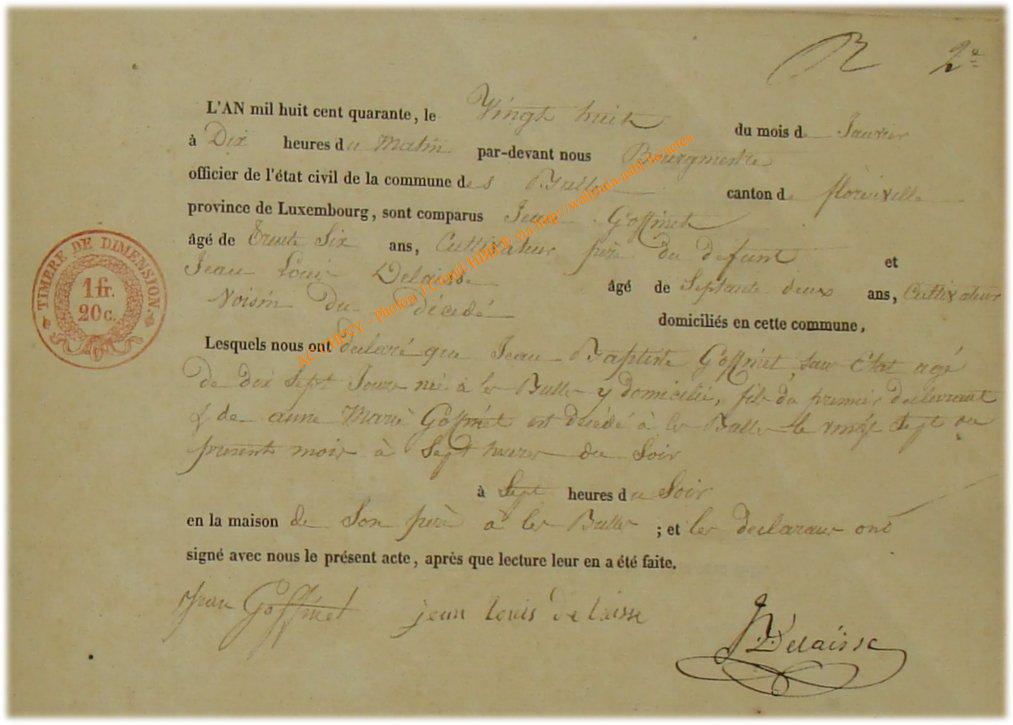 R 2e
L'AN mil huit cent quarante, le Vingt huit du mois de Janvier
à Dix heures du Matin par-devant nous Bourgmestre
officier de l'état civil de la commune des Bulles canton de florenville
province de Luxembourg, sont comparus Jean Goffinet
âgé de trente Six ans, Cultivateur père du defunt et
Jean Louis Delaisse âgé de Septante deux ans, Cultivateur
Voisin Du décédé domiciliés en cette commune,
Lesquels nous ont declaré que Jean Baptiste Goffinet, sans état agé
de dix Sept Jours né à les Bulles y domicilié, fils du premier declarant
& de anne Marie Goffinet est décédé à les Bulles le vingt Sept du
present mois à Sept heures du Soir
à Sept heures du Soir
en la maison de Son père à les Bulles ; et les declarans ont
signé avec nous le présent acte, après que lecture leur en a été faite.
Jean Goffinet jean louis delaisse
Delaisse
TIMBRE DE DIMENSION
1 fr.
20 c.